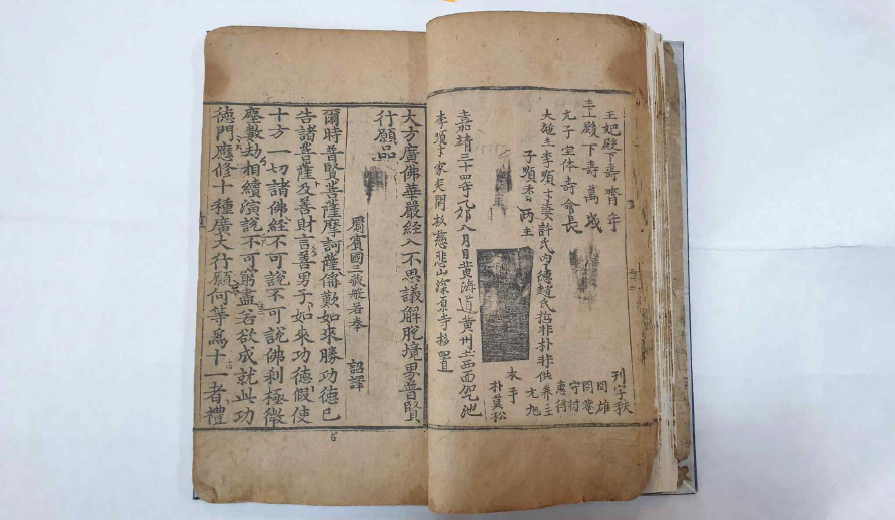 王妃殿下壽齊年
主上殿下壽萬歲
子宝体壽命長
大施主李頭才妻許氏內德趙氏 非朴非供養主
子頭香兩主
刊字秩
雄
守付
惠衍
旭
木手
朴莫松
嘉靖三十四年乙卯八月日黃海道黃州土西面
李頭才家矣開板慈悲山深源寺移置
大方廣佛華嚴經入不思議解脫境界普賢
行願品
罽賓國三藏般若奉 詔譯
爾時普賢菩薩摩訶薩稱歎如來勝功德已
告諸菩薩及善財言善男子如來功德假使
十方一切諸佛經不可說不可說佛刹極微
塵數劫相續演說不可窮盡若欲成就此功
德門應修十種廣大行願何等爲十一者禮